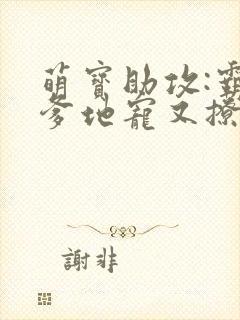 萌寶助攻:霸
爹地寵又撩
謝非